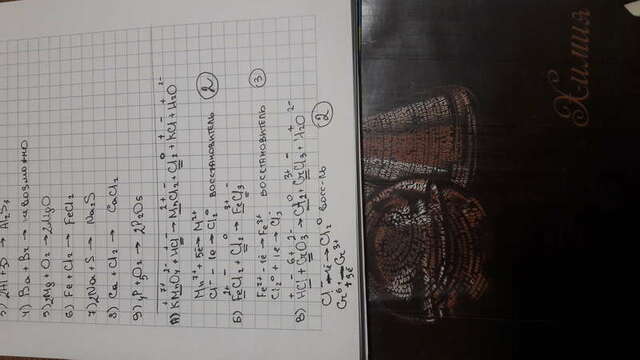 3) 2Al + 3S → Al₂S₃
4) Ba + Br → невозможно
5) 2Mg + O₂ → 2MgO
6) Fe + Cl₂ → FeCl₂
7) 2Na + S → Na₂S
8) Ca + Cl₂ → CaCl₂
9) 4P + 5O₂ → 2P₂O₅
+ 7+ 2- + - 2+ - 0 + - + 2-
А) KMnO₄ + HCl → MnCl₂ + Cl₂ + KCl + H₂O
Mn⁷⁺ + 5ē → M²⁺
Cl⁻ - 1ē → Cl₂⁰ восстановитель 2
2+ - 0 3+ -
Б) FeCl₂ + Cl₂ → FeCl₃
Fe²⁺ - 1ē → Fe³⁺ восстановитель 3
Cl₂⁰ + 1ē → Cl₃⁻
+ - 6+ 2- 0 3+ - + 2-
В) HCl + CrO₃ → Cl₂ + CrCl₃ + H₂O
Cl⁻ - 1ē → Cl₂⁰ восс-ль 2
Cr⁶⁺ + 3ē → Cr³⁺
Химия